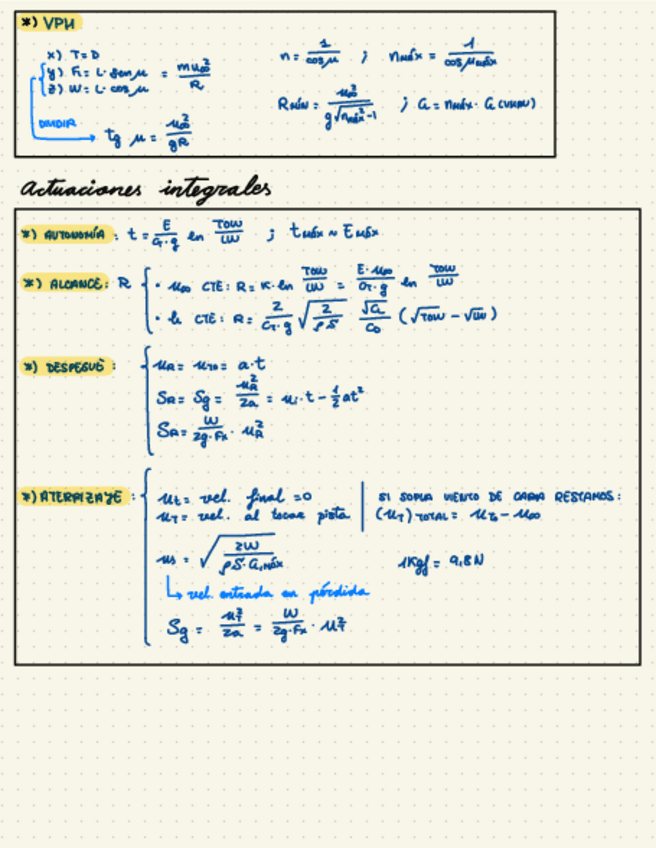 *) VPH
x) T=D
y) Fc= L·senμ = mu∞²/R
z) W= L·cosμ
DIVIDIR → tg μ = u∞²/gR
n= 1/cosμ ; nmáx = 1/cosμmáx
Rmín = u∞²/g√(nmáx²-1) ; CL= nmáx· CL(VHRU)
Actuaciones integrales
*) AUTONOMÍA: t= E/(CT·g) ln TOW/LW ; tmáx ~ Emáx
*) ALCANCE: R
· u∞ CTE: R= K·ln TOW/LW = E·u∞/(CT·g) ln TOW/LW
· h CTE: R= 2/(CT·g) √(2/ρS) √CL/CD (√TOW - √LW)
*) DESPEGUE:
uR= uTO= a·t
SR= Sg= uR²/2a = ui·t - ½at²
SR= W/(2g·Fx) · uR²
*) ATERRIZAJE:
ut= vel. final =0
uT= vel. al tocar pista
SI SOPLA VIENTO DE CARA RESTAMOS:
(uT) TOTAL= uT - u∞
us = √(2W/(ρS·CLmáx))
1Kgf= 9,8N
↳ vel. entrada en pérdida
Sg= uT²/2a = W/(2g·Fx) · uT²